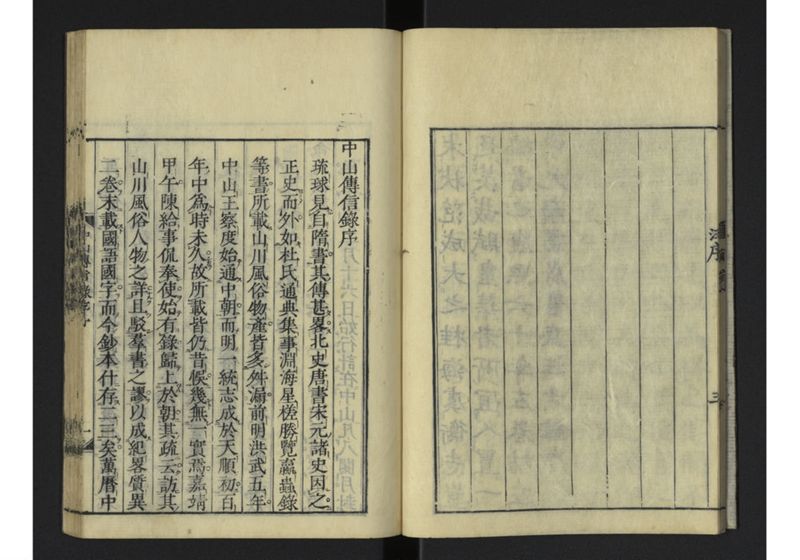 汪序
三
中山傳信錄序
琉球見自隋書其傳甚畧北史唐書宋元諸史因之
正史而外如杜氏通典集事淵海星槎勝覽蠃蟲錄
等書所載山川風俗物產皆多舛漏前明洪武五年
中山王察度始通中朝而明一統志成於天順初百
年中爲時未久故所載皆仍昔悞幾無一實焉嘉靖
甲午陳給事侃奉使始有錄歸上於朝其疏云訪其
山川風俗人物之詳且駁羣書之謬以成紀畧質異
二卷末載國語國字而今鈔本什存二三矣萬曆中
中山傳信錄序
一